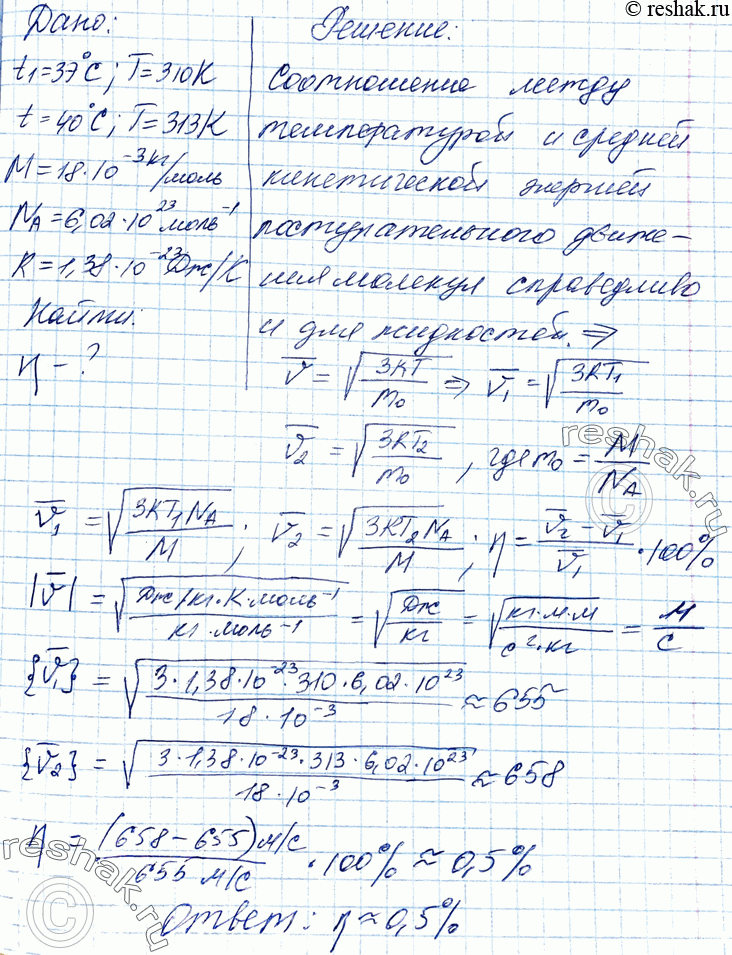 © reshak.ru
Дано:
t₁=37°C; T=310K
t=40°C; T=313K
M=18·10⁻³кг/моль
N_A=6,02·10²³моль⁻¹
k=1,38·10⁻²³Дж/К
Найти:
η - ?
Решение:
Соотношение между
температурой и средней
кинетической энергией
поступательного движе-
ния молекул справедливо
и для жидкостей. ⇒
v̅ = √(3kT/m₀) ⇒ v̅₁ = √(3kT₁/m₀)
v̅₂ = √(3kT₂/m₀), где m₀ = M/N_A
v̅₁ = √(3kT₁N_A/M); v̅₂ = √(3kT₂N_A/M); η = (v̅₂ - v̅₁)/v̅₁ · 100%
|v̅| = √(Дж/кг·К·моль⁻¹/кг·моль⁻¹) = √(Дж/кг) = √(кг·м·м/с²·кг) = м/с
{v̅₁} = √(3·1,38·10⁻²³·310·6,02·10²³/18·10⁻³) ≈ 655
{v̅₂} = √(3·1,38·10⁻²³·313·6,02·10²³/18·10⁻³) ≈ 658
η = (658-655)м/с/655 м/с · 100% ≈ 0,5%
Ответ: η ≈ 0,5%
reshak.ru
©
reshak.ru
©